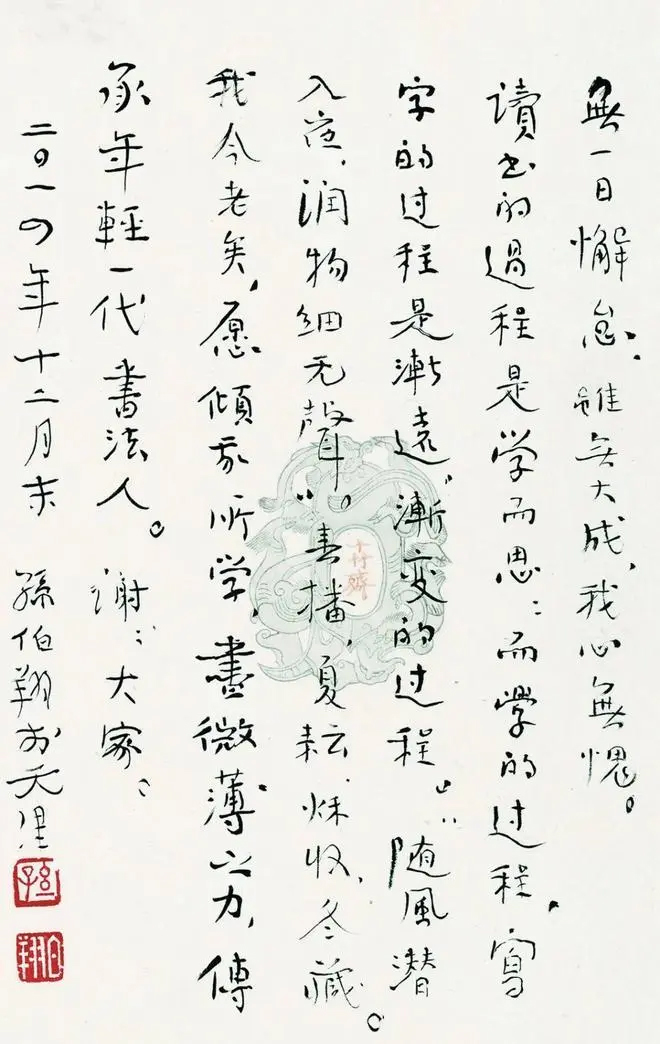 無一日懈怠,雖無大成,我心無愧。
讀书的過程是学而思:而學的过程,寫
字的过程是漸遠,漸变的过程。“随風潜
入夜,润物细无聲”。春播,夏耘,秌收,冬藏。
我今老矣,愿傾我所学,盡微薄之力,傳
承年輕一代書法人。谢:大家:
二〇一四年十二月末 孫伯翔於天津
孫
伯翔
十竹齋